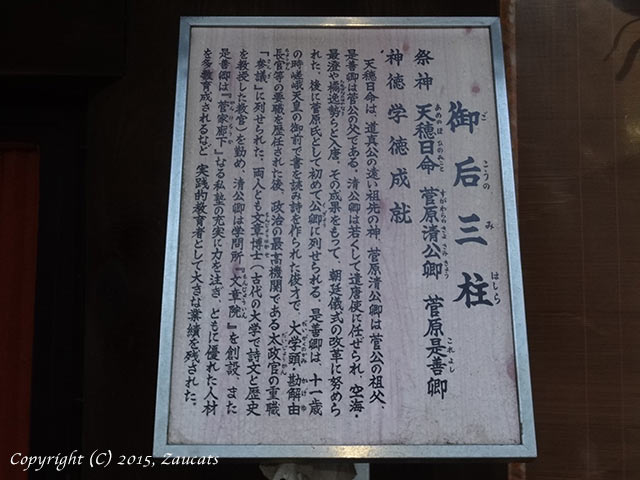 御后三柱
ごこうのみはしら
祭神 天穂日命 菅原清公卿 菅原是善卿
神徳 学徳成就
天穂日命は、道真公の遠い祖先の神、菅原清公卿は菅公の祖父、
是善卿は菅公の父である。清公卿は若くして遣唐使に任ぜられ、空海・
最澄や橘逸勢らと入唐。その成果をもって、朝廷儀式の改革に努めら
れた。後に菅原氏として初めて公卿に列せられる。是善卿は、十一歳
の時嵯峨天皇の御前で書を読み詩を作られた俊才で、大学頭・勘解由
長官等の要職を歴任された後、政治の最高機関である太政官の重職
『参議』に列せられた。両人とも文章博士(古代の大学で詩文と歴史
を教授した教官)を勤め、清公卿は学問所『文章院』を創設、また
是善卿は『菅家廊下』なる私塾の充実に力を注ぎ、ともに優れた人材
を多数育成されるなど 実践的教育者として大きな業績を残された。
Copyright (C) 2015, Zaucats